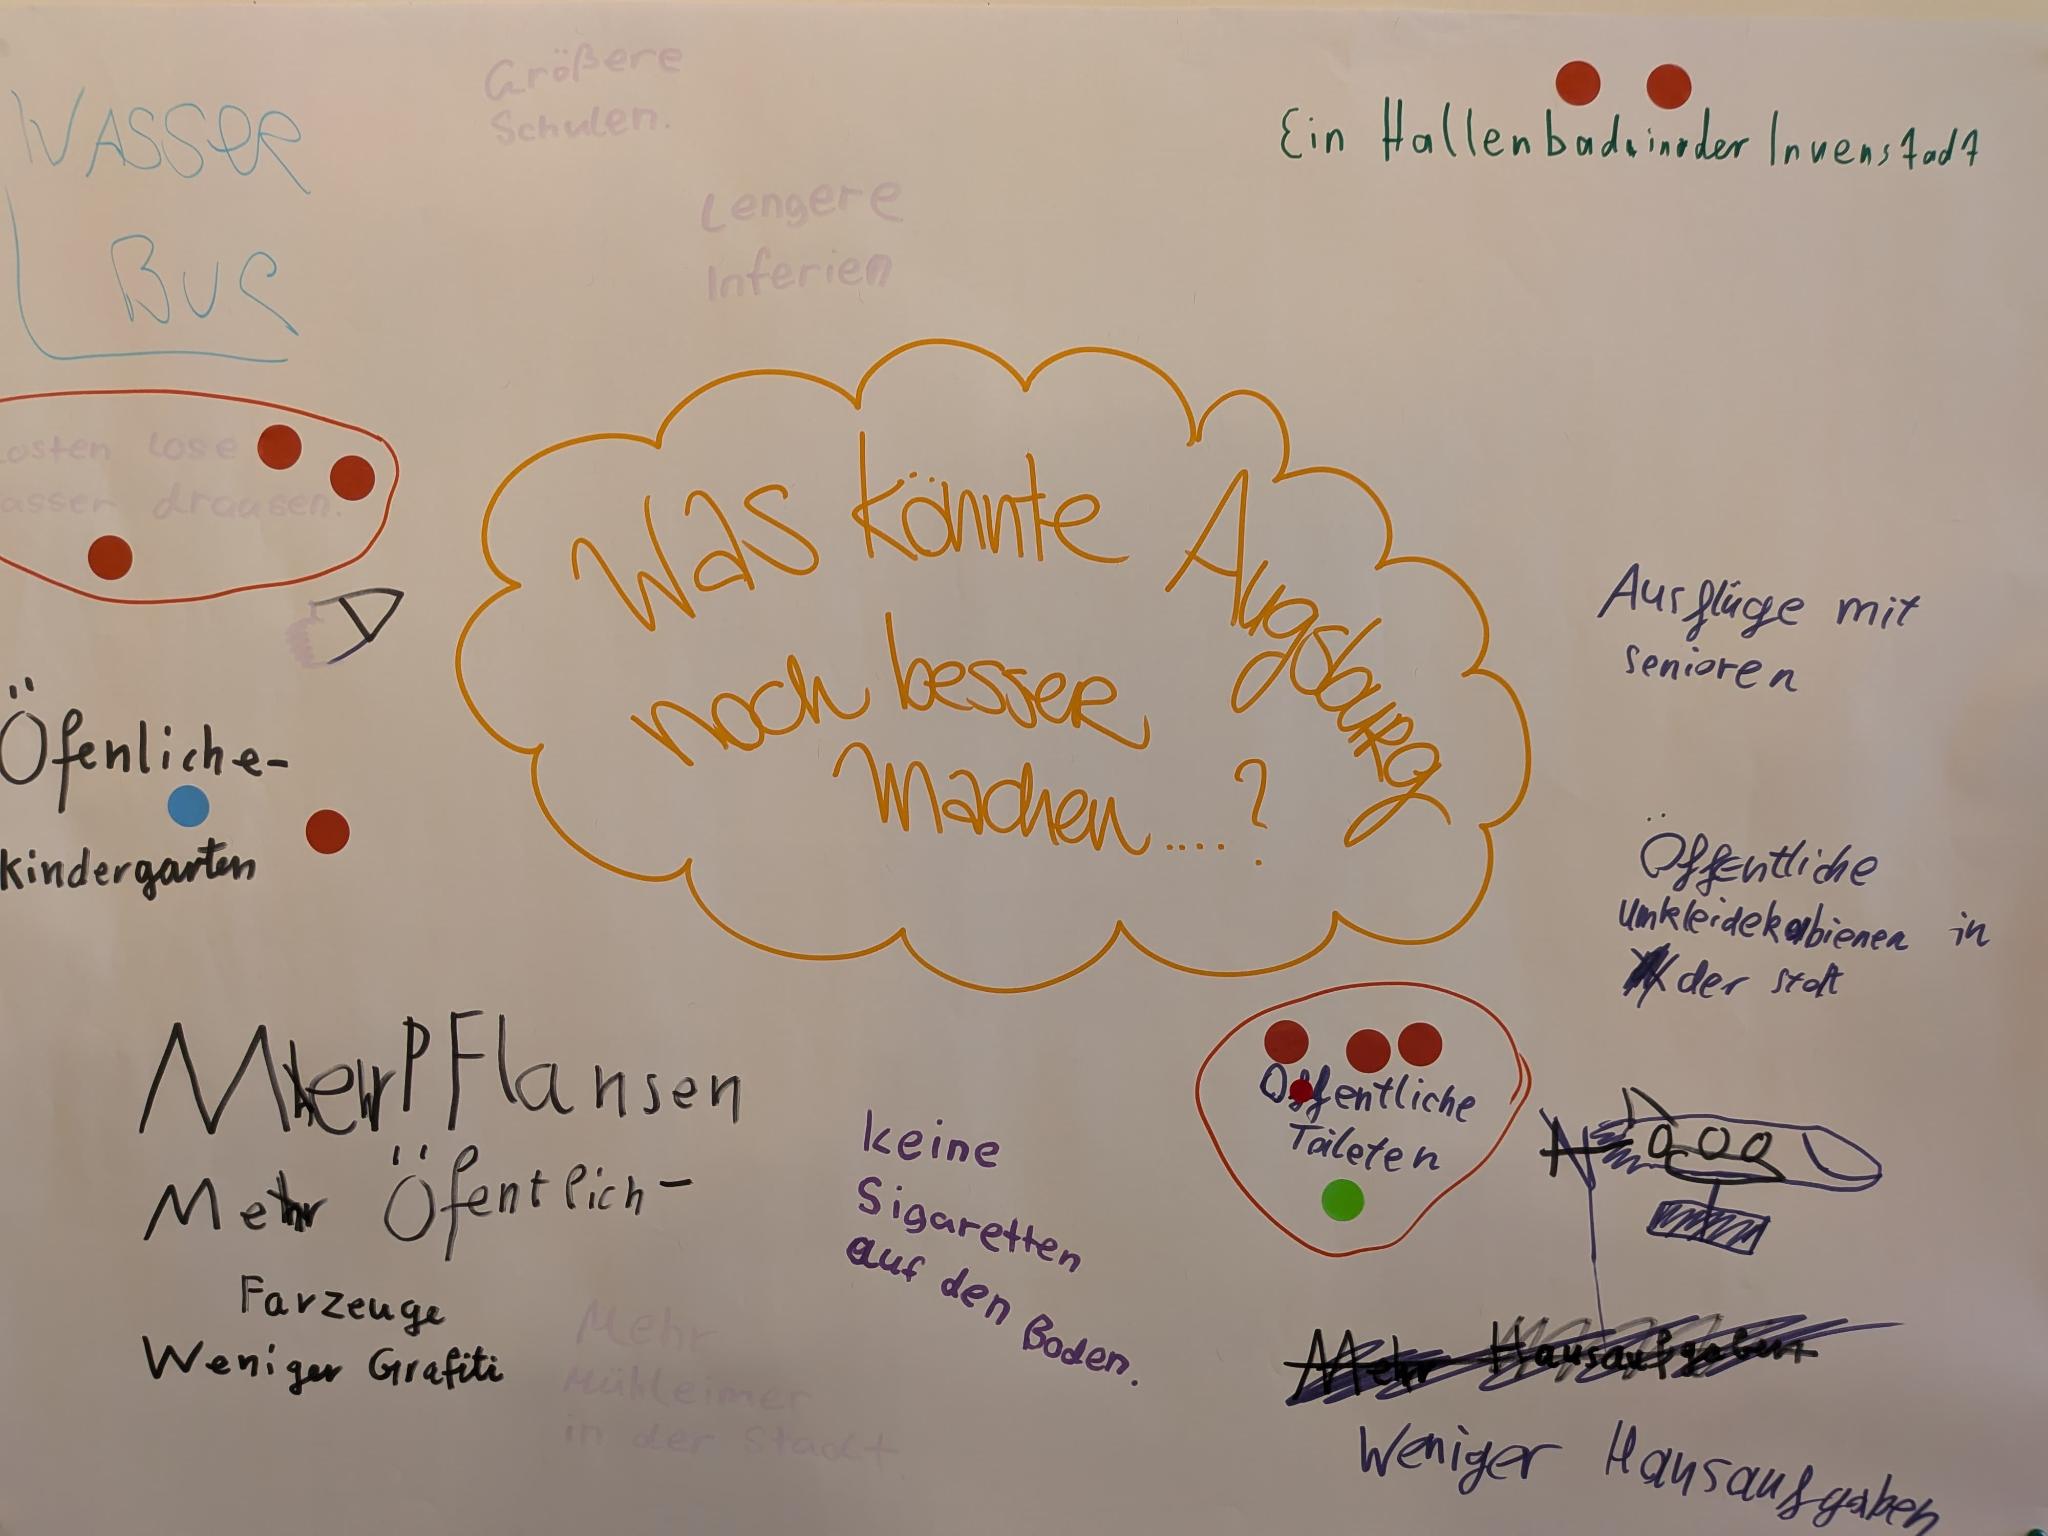 WASSER
BUS
Größere
Schulen.
Lengere
Inferien
Ein Hallenbad in der Innenstadt
osten lose
asser drausen.
Was könnte Augsburg
noch besser
machen....?
Ausflüge mit
senioren
Öfenliche-
kindergarten
Öffentliche
Umkleidekabienen in
der statt
Mehr PFlansen
Mehr Öfentlich-
Farzeuge
Weniger Grafiti
Mehr
Mühleimer
in der Stadt.
keine
Sigaretten
auf den Boden.
Öffentliche
Taileten
Mehr Hausaufgaben
Weniger Hausaufgaben